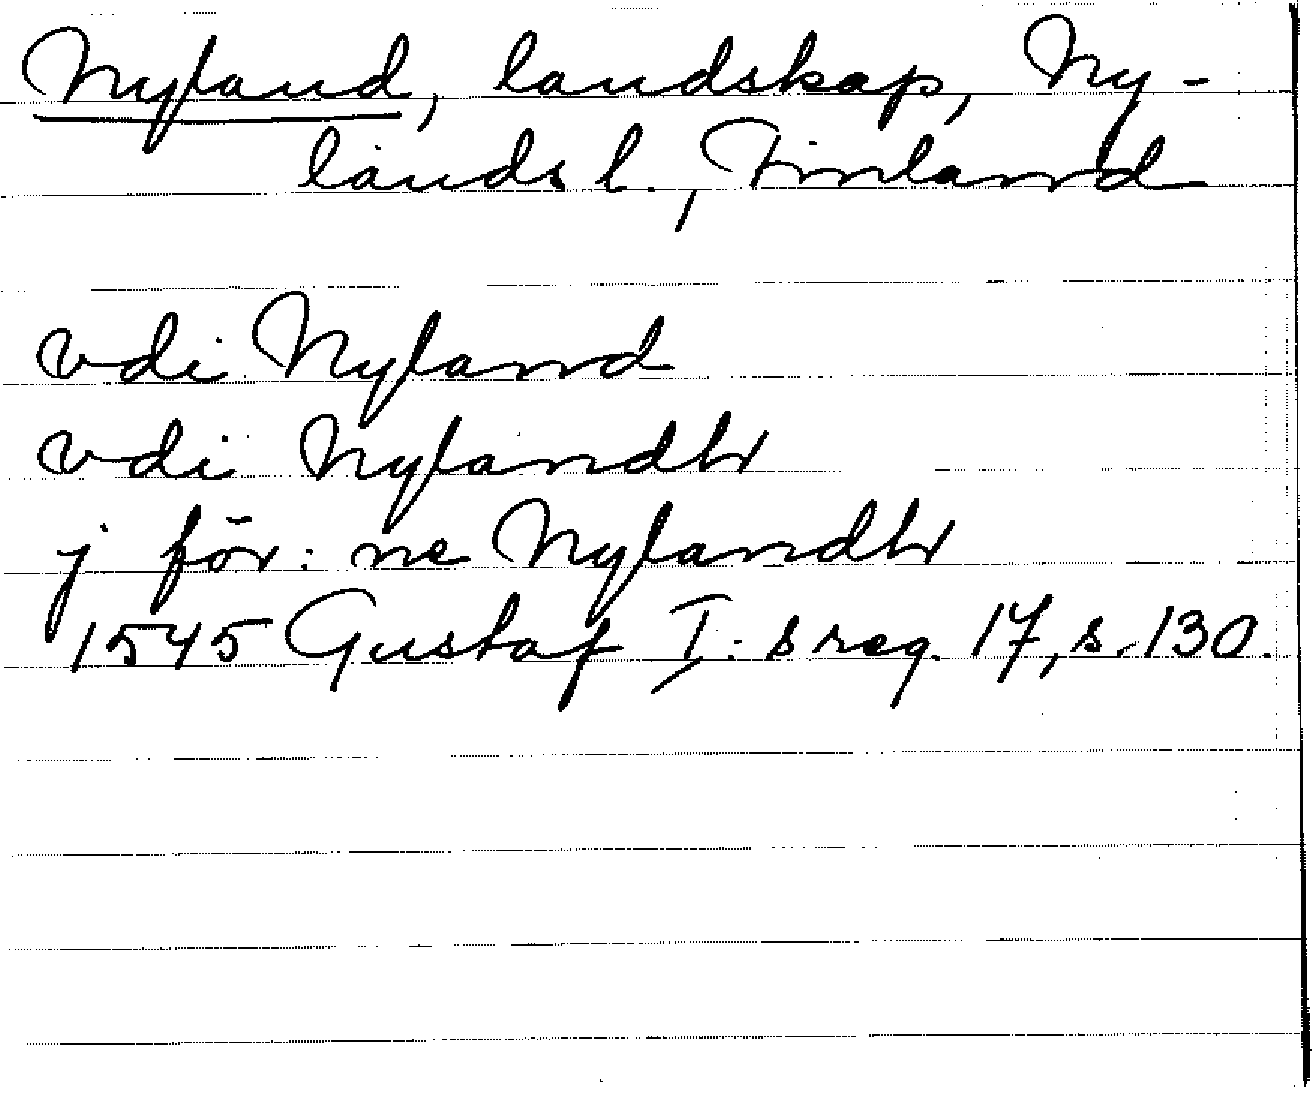 Nyland, landskap, Ny-
lands l., Finland
vdi Nyland
vdi Nylandh
j för: ne Nylandh
1545 Gustaf I: s reg. 17, s. 130.